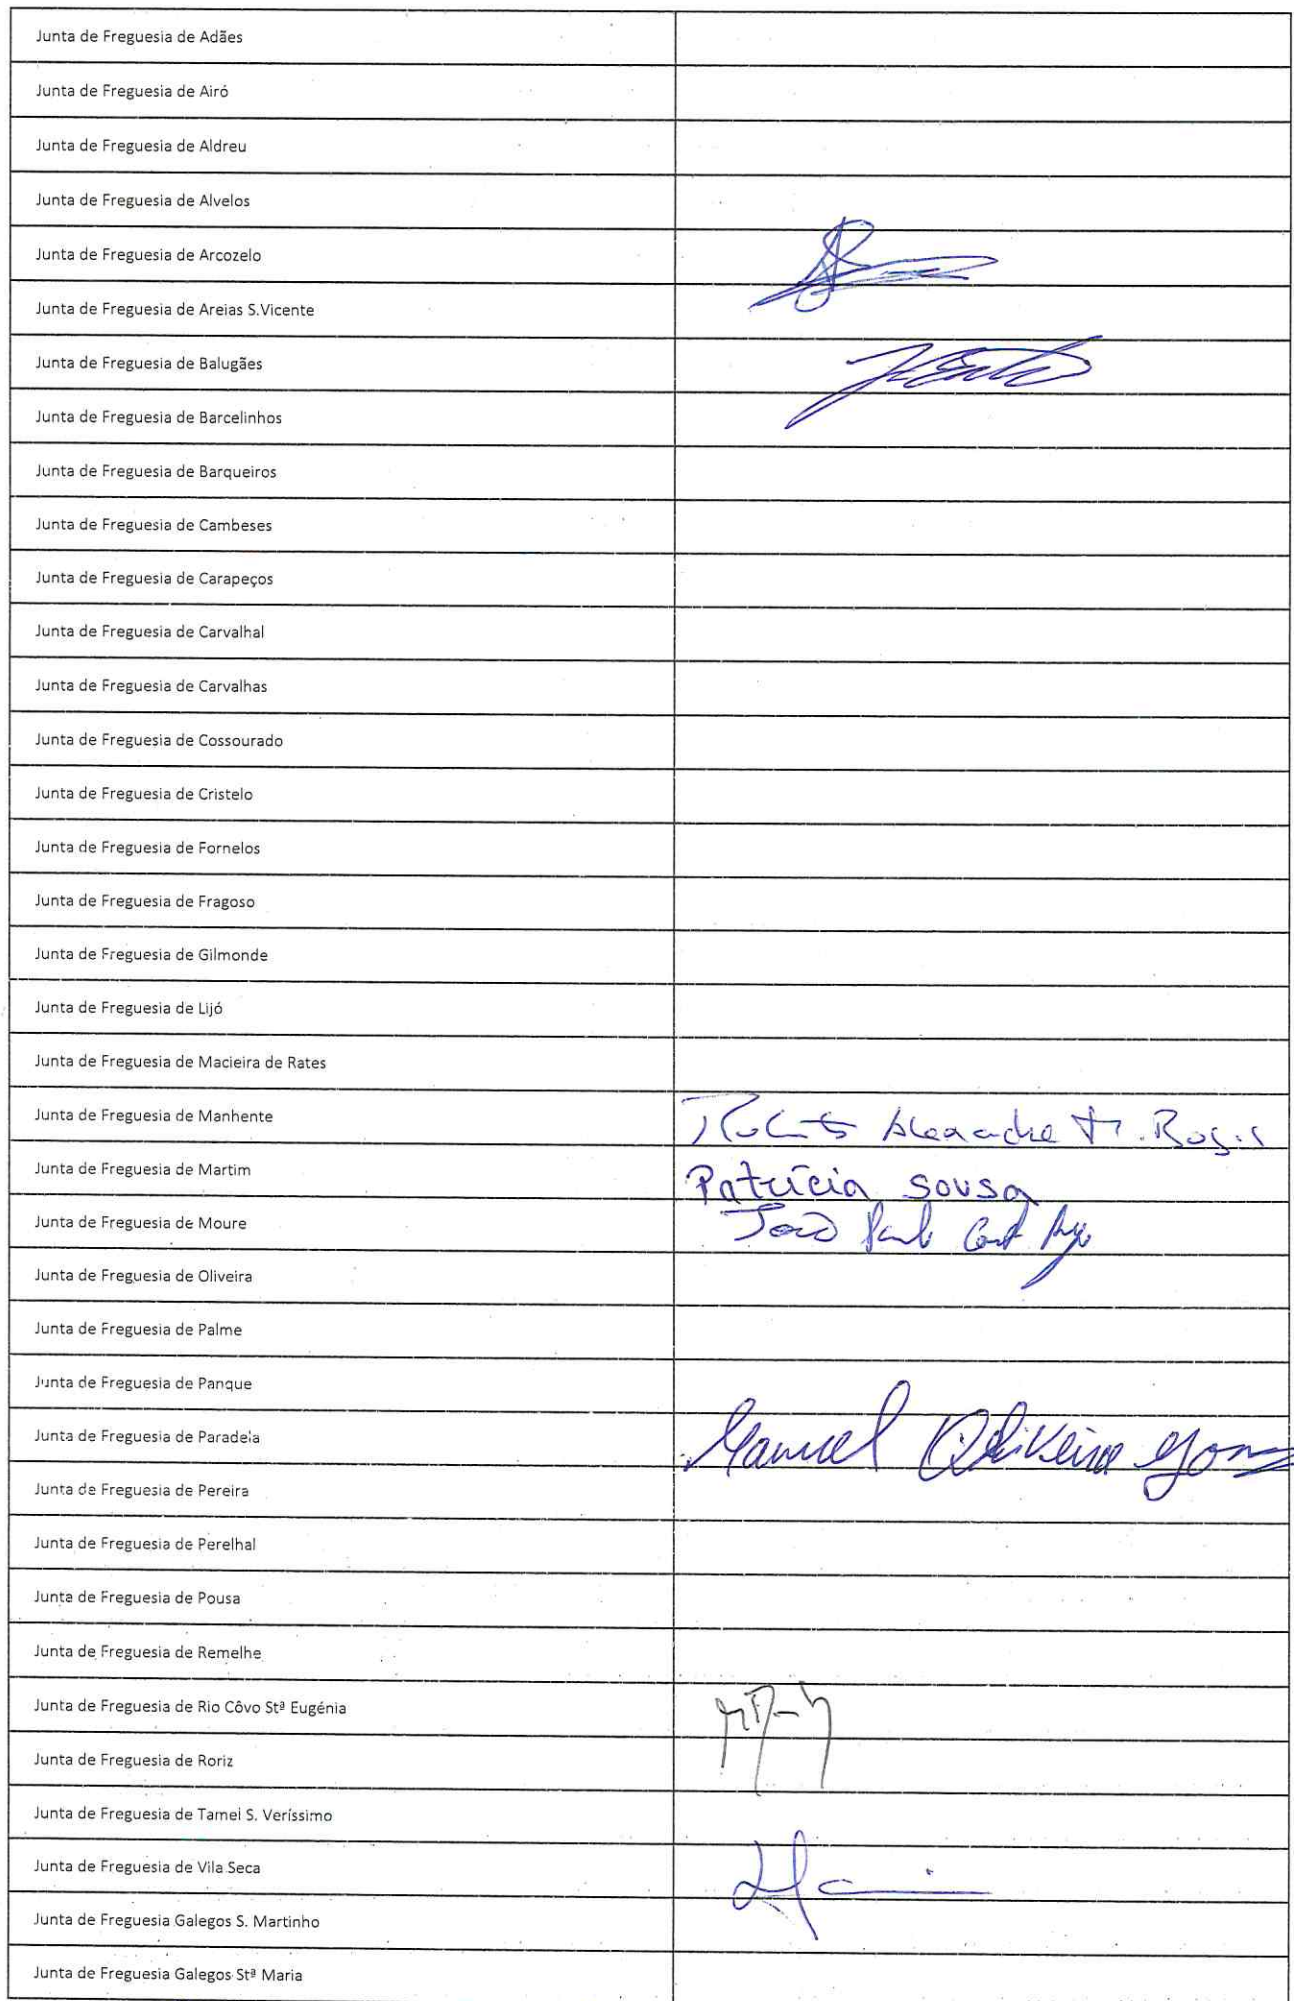 Junta de Freguesia de Adães
Junta de Freguesia de Airó
Junta de Freguesia de Aldreu
Junta de Freguesia de Alvelos
Junta de Freguesia de Arcozelo
Junta de Freguesia de Areias S.Vicente
Junta de Freguesia de Balugães
Junta de Freguesia de Barcelinhos
Junta de Freguesia de Barqueiros
Junta de Freguesia de Cambeses
Junta de Freguesia de Carapeços
Junta de Freguesia de Carvalhal
Junta de Freguesia de Carvalhas
Junta de Freguesia de Cossourado
Junta de Freguesia de Cristelo
Junta de Freguesia de Fornelos
Junta de Freguesia de Fragoso
Junta de Freguesia de Gilmonde
Junta de Freguesia de Lijó
Junta de Freguesia de Macieira de Rates
Junta de Freguesia de Manhente Alexandre
Junta de Freguesia de Martim Patrícia Sousa
Junta de Freguesia de Moure João
Junta de Freguesia de Oliveira
Junta de Freguesia de Palme
Junta de Freguesia de Panque
Junta de Freguesia de Paradela Manuel Oliveira
Junta de Freguesia de Pereira
Junta de Freguesia de Perelhal
Junta de Freguesia de Pousa
Junta de Freguesia de Remelhe
Junta de Freguesia de Rio Côvo Stª Eugénia
Junta de Freguesia de Roriz
Junta de Freguesia de Tamel S. Veríssimo
Junta de Freguesia de Vila Seca
Junta de Freguesia Galegos S. Martinho
Junta de Freguesia Galegos Stª Maria